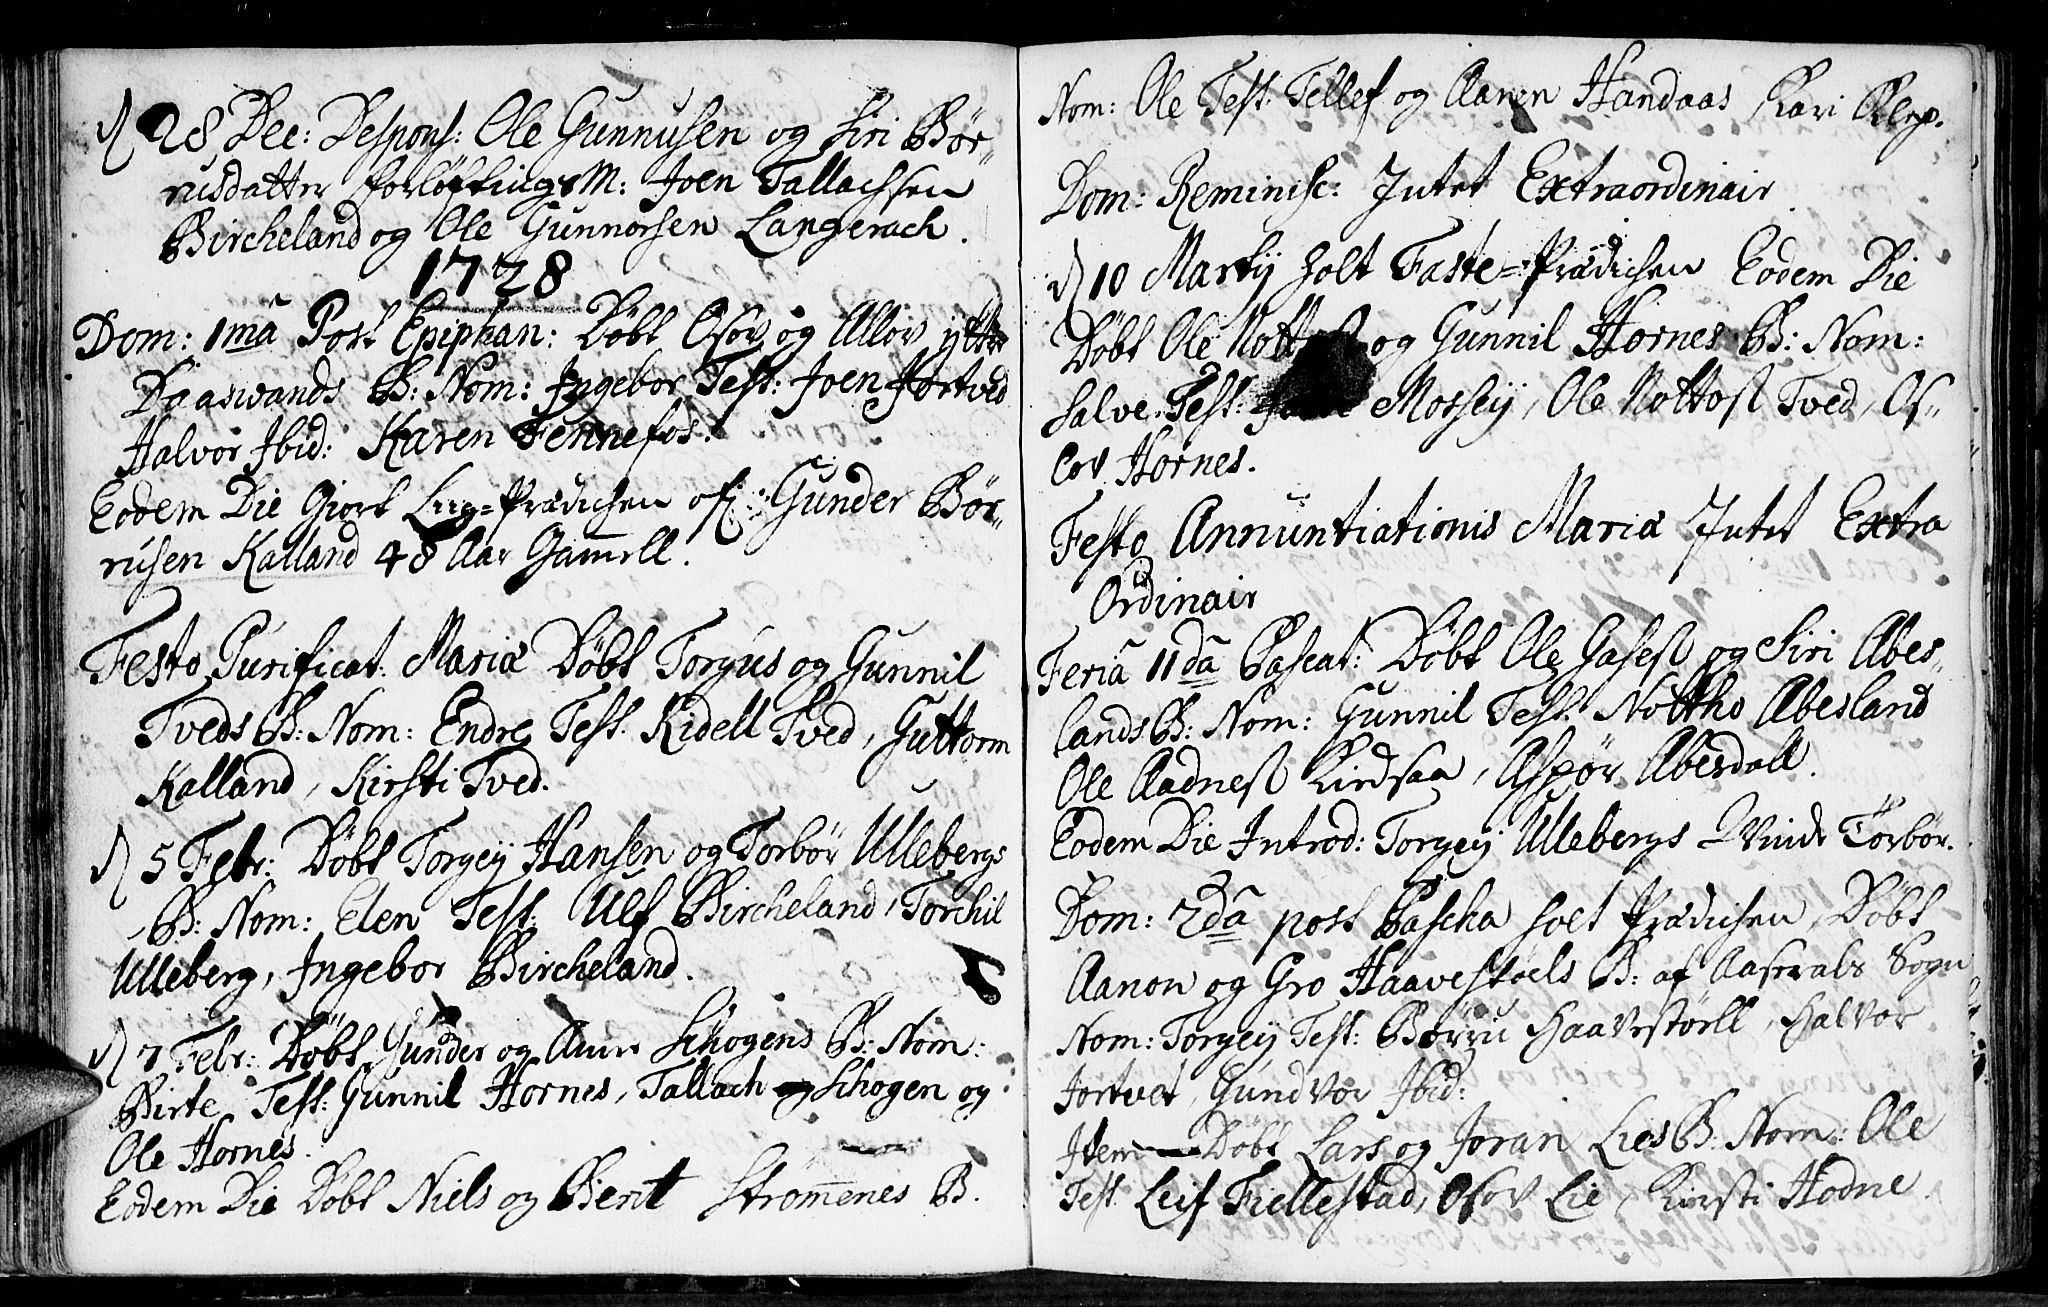 d 28 Dec: Despons: Ole Gunnusen og Siri Bør-
rusdatter forløftings M: Joen Tallachsen
Bircheland og Ole Gunnorsen Langerach.
1728
Dom: 1mâ Post Epiphan: Døbt Osov og Alov ytter
Daaswands B: Nom: Ingebor Test: Joen Hortved
Halvor Ibid: Karen Fennefos.
Eodem Die Giort Liig-Prædichen of: Gunder Bør-
rusen Kalland 48 Aar Gamell.
Festo Purificat: Mariæ Døbt Torgus og Gunnil
Tveds B: Nom: Endre Test. Kidell Tved, Guttorm
Kalland, Kirsti Tved.
d 5 Febr: Døbt Torgey Hansen og Torbør Ullebergs
B: Nom: Elen Test: Ulf Bircheland, Torchil
Ulleberg, Ingebor Bircheland.
d 7 Febr: Døbt Gunder og Anne Schogens B: Nom:
Birte, Test: Gunnil Hornes, Tallach Schogen og
Ole Hornes.
Eodem Die Døbt Niels og Berit Strømenes B.
Nom: Ole Test: Tellef og Aaren Handaas Kari Klep.
Dom: Reminisc: Intet Extraordinair.
d 10 Martij holt Faste-Prædichen Eodem Die
Døbt Ole og Gunnil Hornes B: Nom:
Salve Test: Mossey, Ole Nottoss Tved, Os-
lov Hornes.
Festo Annuntiationis Mariæ Intet Extra
Ordinair
Feriâ 11dâ Pascat: Døbt Ole Gasess og Siri Abes-
lands B: Nom: Gunnil Test: Nottho Abesland
Ole Aadness Kirdsaa, Aspør Abesdall.
Eodem Die Introd: Torgey Ullebergs Vinde Torbør.
Dom: 2dâ post Pascha holt Prædichen, Døbt
Aanon og Gro Haavestøels B: af Aaserals Sogn
Nom: Torgey Test: Børru Haavestøell, Halvor
Jortvet, Gundvor Ibid:
Item Døbt Lars og Joran Lies B: Nom: Ole
Test. Leif Fiellestad, Osov Lie, Kirsti Hodne.